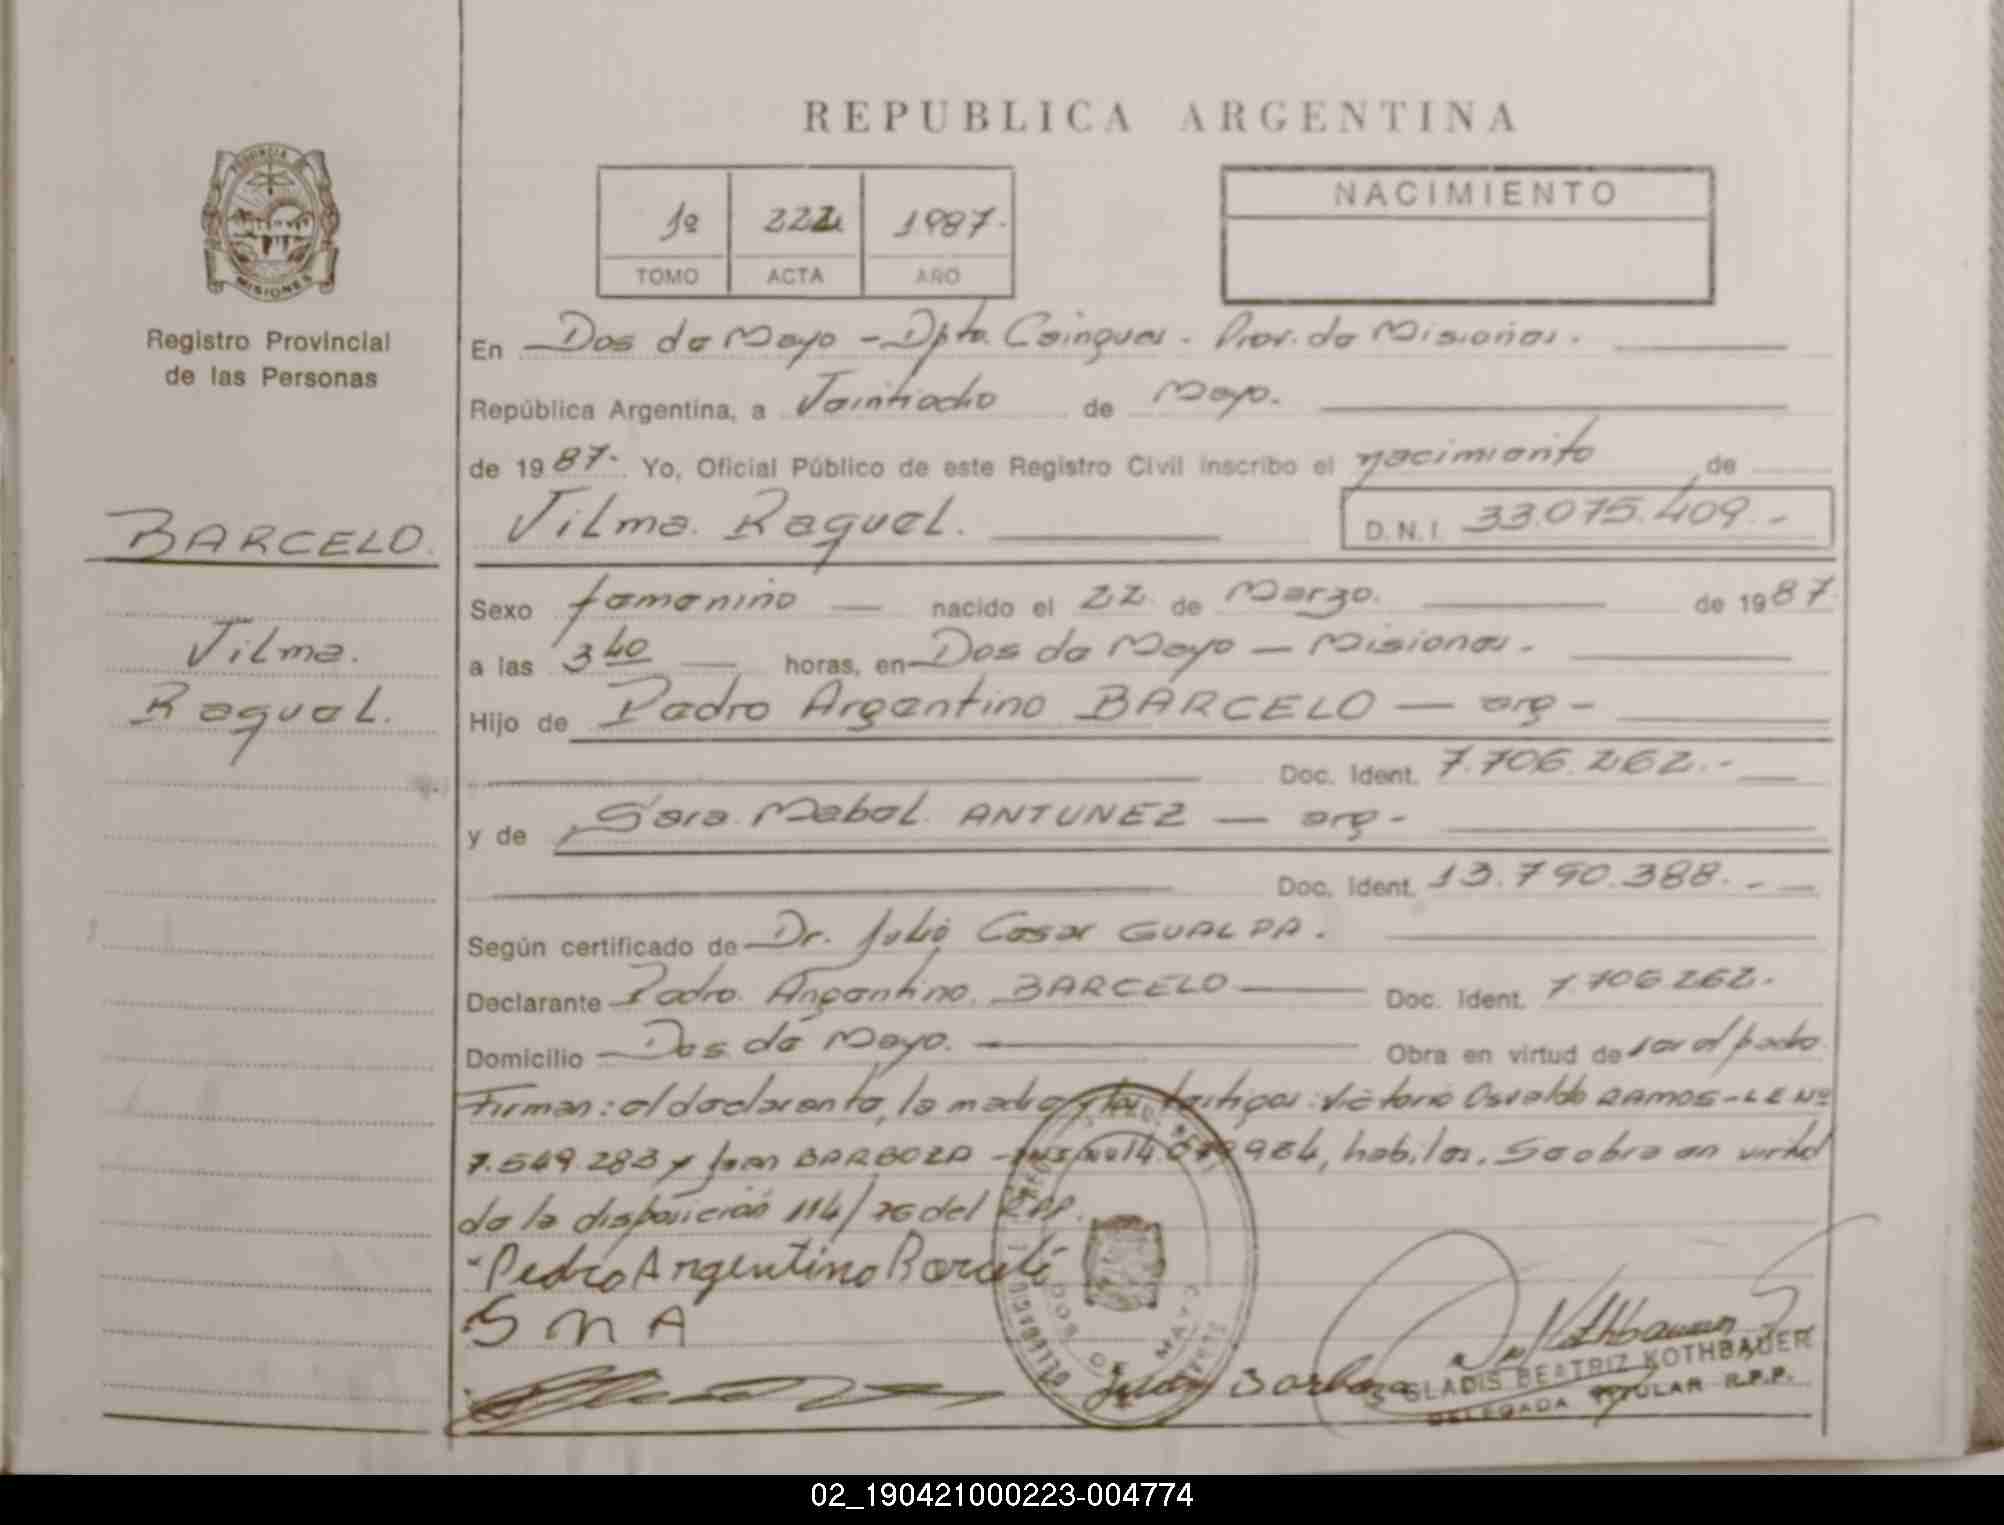 REPUBLICA ARGENTINA
PROVINCIA DE
MISIONES
Registro Provincial
de las Personas
1º 222 1987.
TOMO ACTA AÑO
NACIMIENTO
En Dos de Mayo - Dpto. Cainguas. Prov. de Misiones.
República Argentina, a Veintiocho de Mayo.
de 1987. Yo, Oficial Público de este Registro Civil inscribo el nacimiento de
Vilma Raquel.
D.N.I. 33.075.409.-
BARCELO.
Vilma.
Raquel.
Sexo femenino — nacido el 22 de Marzo. de 1987.
a las 3 40 — horas, en Dos de Mayo - Misiones.
Hijo de Pedro Argentino BARCELO — arg -
Doc. Ident. 7.706.262.-
y de Sara Mabel ANTUNEZ — arg -
Doc. Ident. 13.790.388.-
Según certificado de Dr. Julio Cesar GUALDA.
Declarante Pedro Argentino BARCELO Doc. Ident. 7.706.262.
Domicilio Dos de Mayo. Obra en virtud de ser el padre
Firman: el declarante, la madre y los testigos: Victorio Osvaldo RAMOS - LE Nº
7.549.283 y Juan BARBOZA - habiles. Se obra en virtud
de la disposicion 114/76 del RPP.
Pedro Argentino Barceló
S M A
Juan Barboza
GLADIS BEATRIZ KOTHBAUER
DELEGADA TITULAR R.P.P.
DOS DE MAYO
02_190421000223-004774